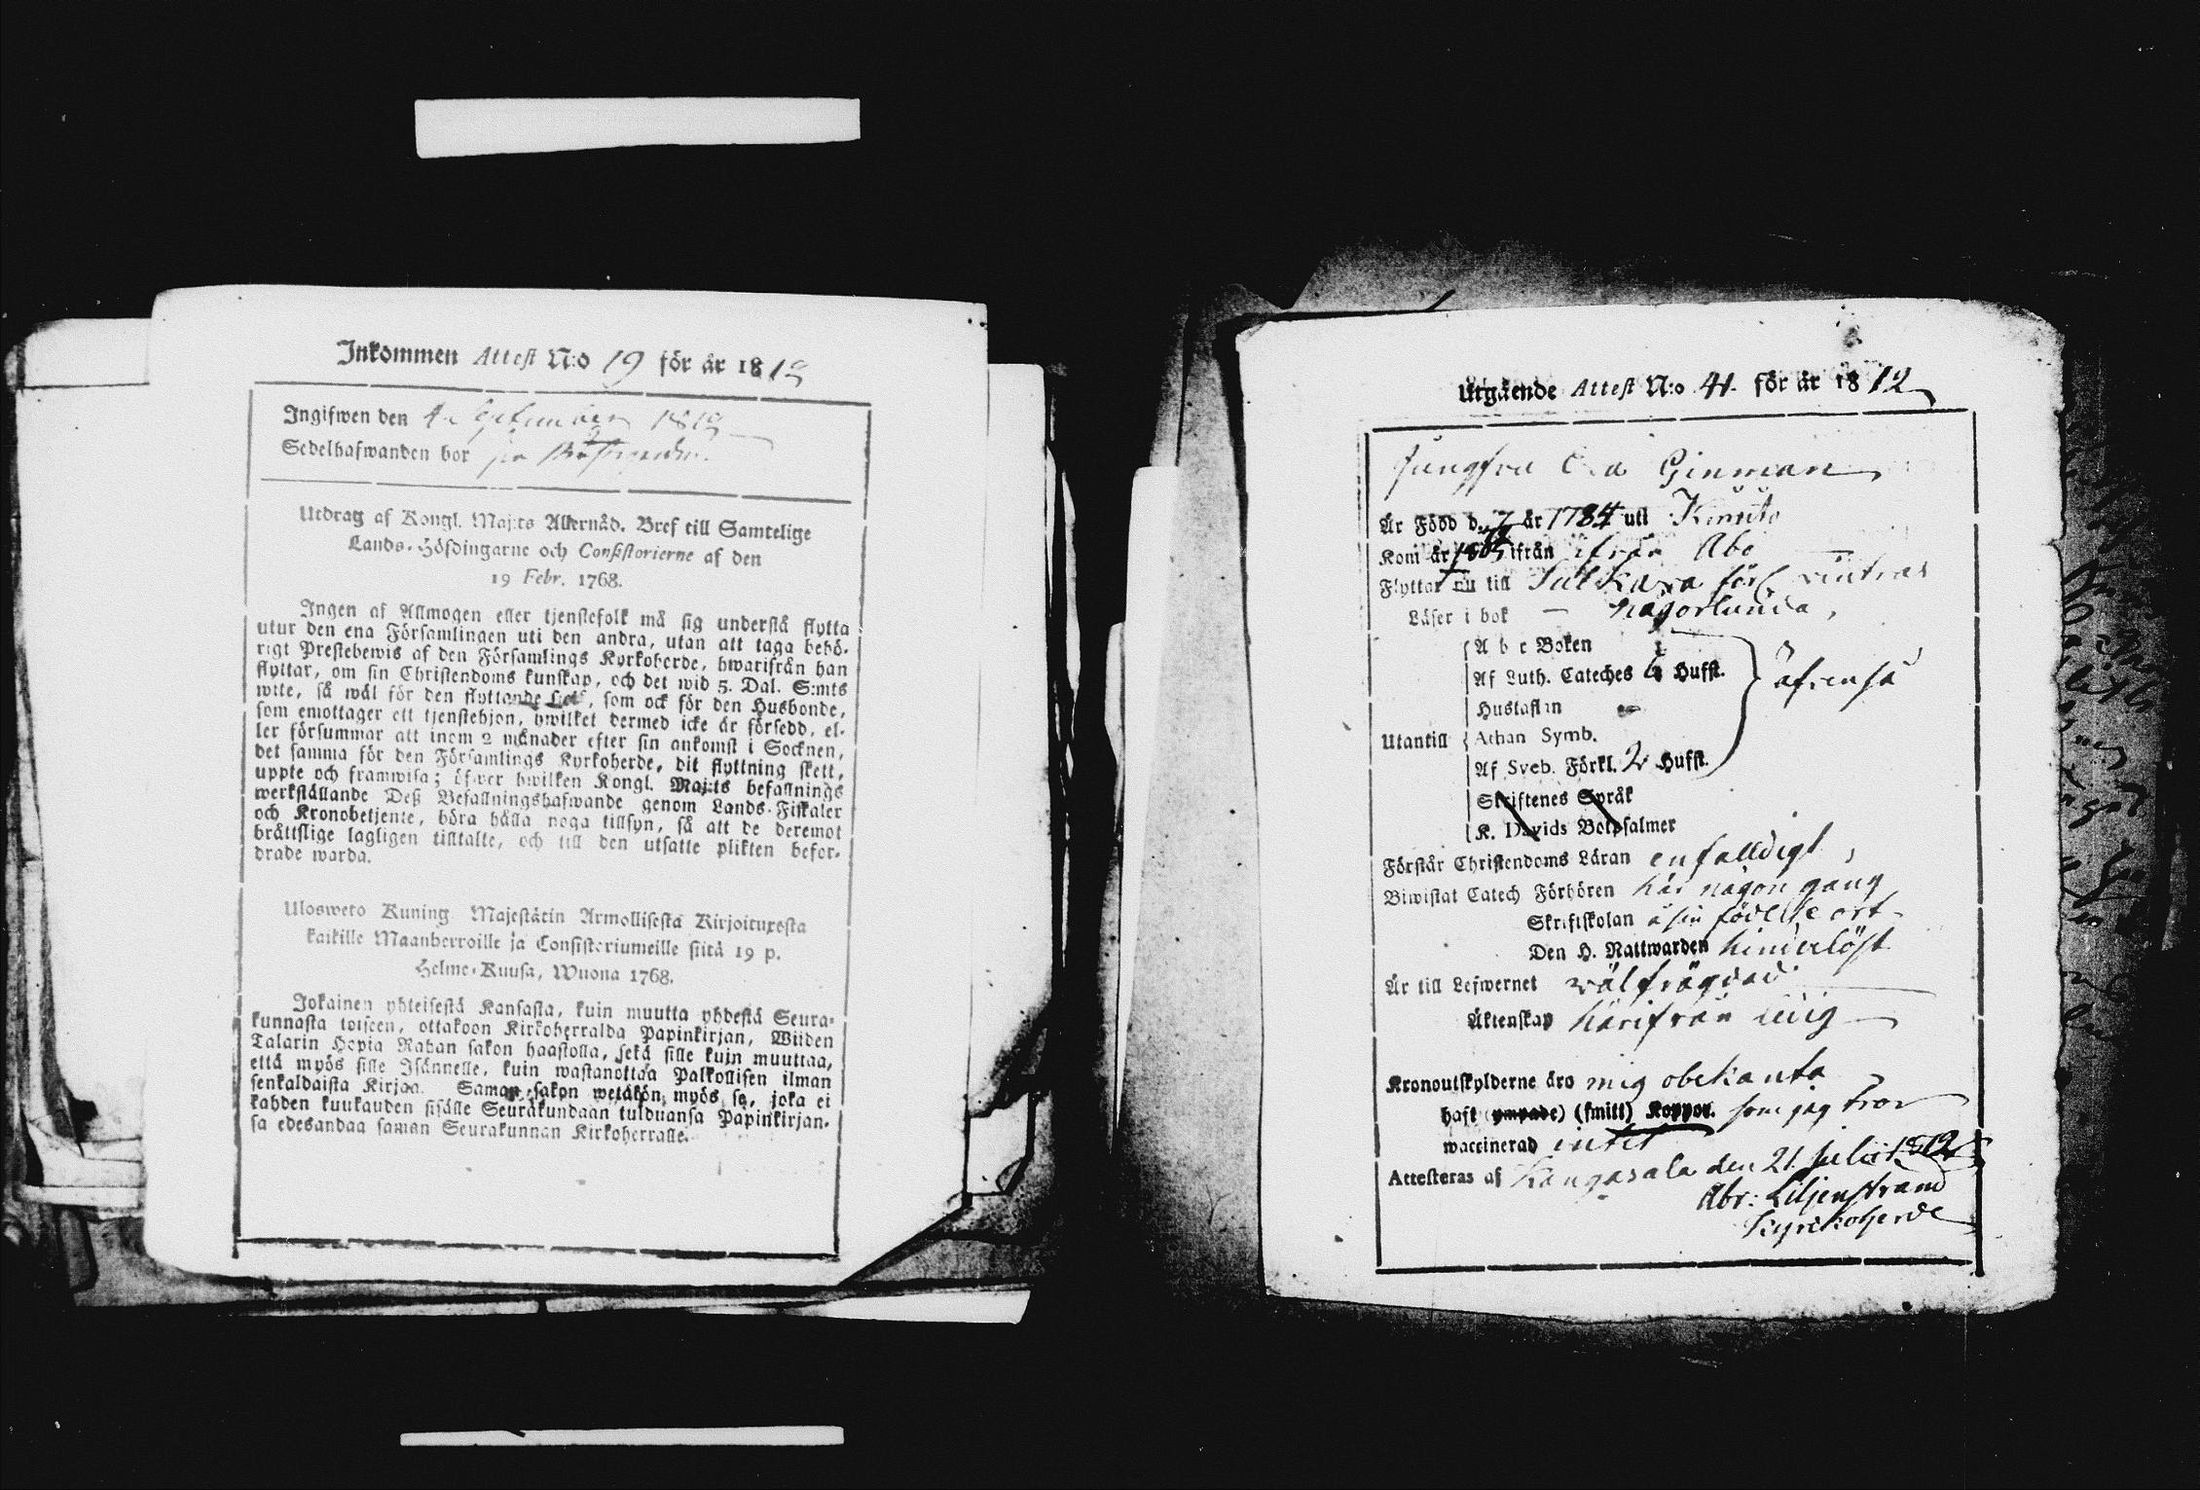 Inkommen Attest N:o 19 för år 1812
Ingifwen den 4 September 1812
Sedelhafwanden bor på
Utdrag af Kongl. Maj:ts Allernåd. Bref till Samtelige
Lands-Höfdingarne och Consistorierne af den
19 Febr. 1768.
Ingen af Allmogen eller tjenstefolk må sig understå flytta
utur den ena Församlingen uti den andra, utan att taga behö-
rigt Prestebewis af den Församlings Kyrkoherde, hwarifrån han
flyttar, om sin Christendoms kunskap, och det wid 5. Dal. S:mts
wite, så wäl för den flyttande sjelf, som ock för den Husbonde,
som emottager ett tjenstehjon, hwilket dermed icke är försedd, el-
ler försummar att inom 2 månader efter sin ankomst i Socknen,
det samma för den Församlings Kyrkoherde, dit flyttning skett,
uppte och framwisa; öfwer hwilken Kongl. Maj:ts befallnings
werkställande Deß Befallningshafwande genom Lands-Fiskaler
och Kronobetjente, böra hålla noga tillsyn, så att de deremot
bråttslige lagligen tilltalte, och till den utsatte plikten befor-
drade warda.
Ulosweto Kuning. Majestätin Armollisesta Kirjoituxesta
kaikille Maanherroille ja Consistoriumeille siitä 19 p.
Helme-Kuusa, Wuona 1768.
Jokainen yhteisestä Kansasta, kuin muutta yhdestä Seura-
kunnasta toiseen, ottakoon Kirkoherralda Papinkirjan, Wiiden
Talarin Hopia Rahan sakon haastolla, sekä sille kuin muuttaa,
että myös sille Isännelle, kuin wastanottaa Palkollisen ilman
senkaldaista Kirjaa. Saman sakon wetäkön myös se, joka ei
kahden kuukauden sisälle Seurakundaan tulduansa Papinkirjan-
sa edesandaa saman Seurakunnan Kirkoherralle.
Utgående Attest N:o 41. för år 1812
Jungfru Eva Ginman
Är Född d. 7 år 1784 uti Kimito
Kom år ifrån ifrån Åbo
Flyttar nu till Sulkava förl
Läser i bok — någorlunda,
A b c Boken
Af Luth. Cateches 6 Hufst.
Hustaflan
Utantill Athan Symb.
Af Sveb. Förkl. 2 Hufst.
äfvenså
Skriftenes Språk
K. Davids Botpsalmer
Förstår Christendoms Läran enfalldigt,
Biwistat Catech Förhören här någon gång
Skriftskolan å sin födelse ort
Den H. Nattwarden hinderlöst
Är till Lefwernet välfrägdad
Äktenskap härifrån ledig
Kronoutskylderne äro mig obekanta
haft (ympade) (smitt) Koppor. som jag tror
waccinerad intet
Attesteras af Kangasala den 21 Julii 1812
Abr: Liljenstrand
Kyrkoherde